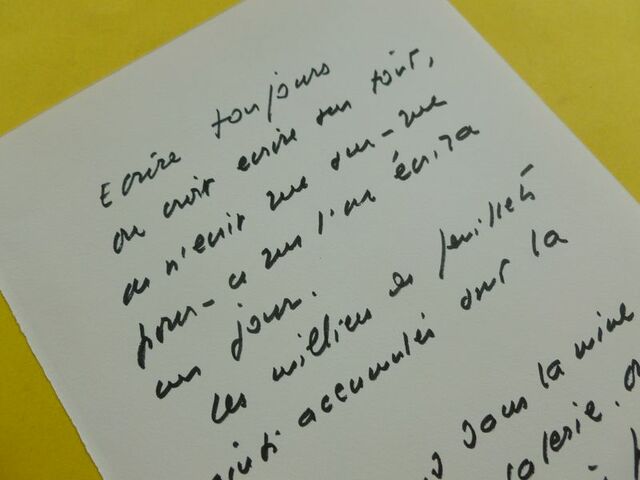 Ecrire toujours
on croit ecrire sur tout,
on n'ecrit que sur-que
pour-ce que l'on écrira
un jour.
Les milliers de feuillets
accumulés sont la
sous la mine